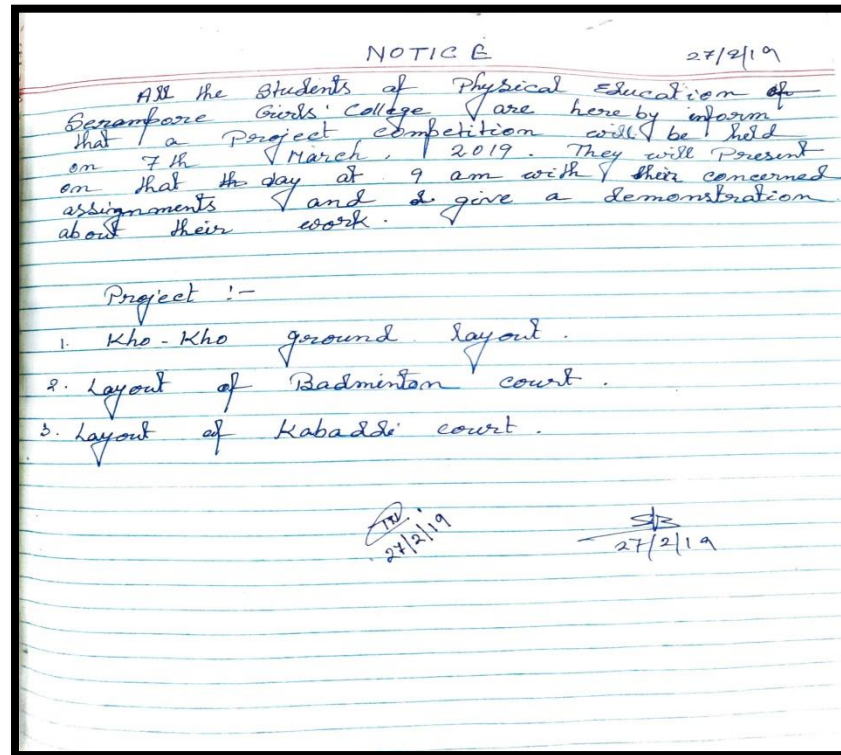 NOTICE 27/2/19
All the Students of Physical Education of
Serampore Girls' College are here by inform
that a Project competition will be held
on 7th March, 2019. They will Present
on that th day at 9 am with their concerned
assignments and & give a demonstration
about their work.
Project :-
1. Kho-Kho ground layout.
2. Layout of Badminton court.
3. Layout of Kabaddi court.
27/2/19 SB
27/2/19